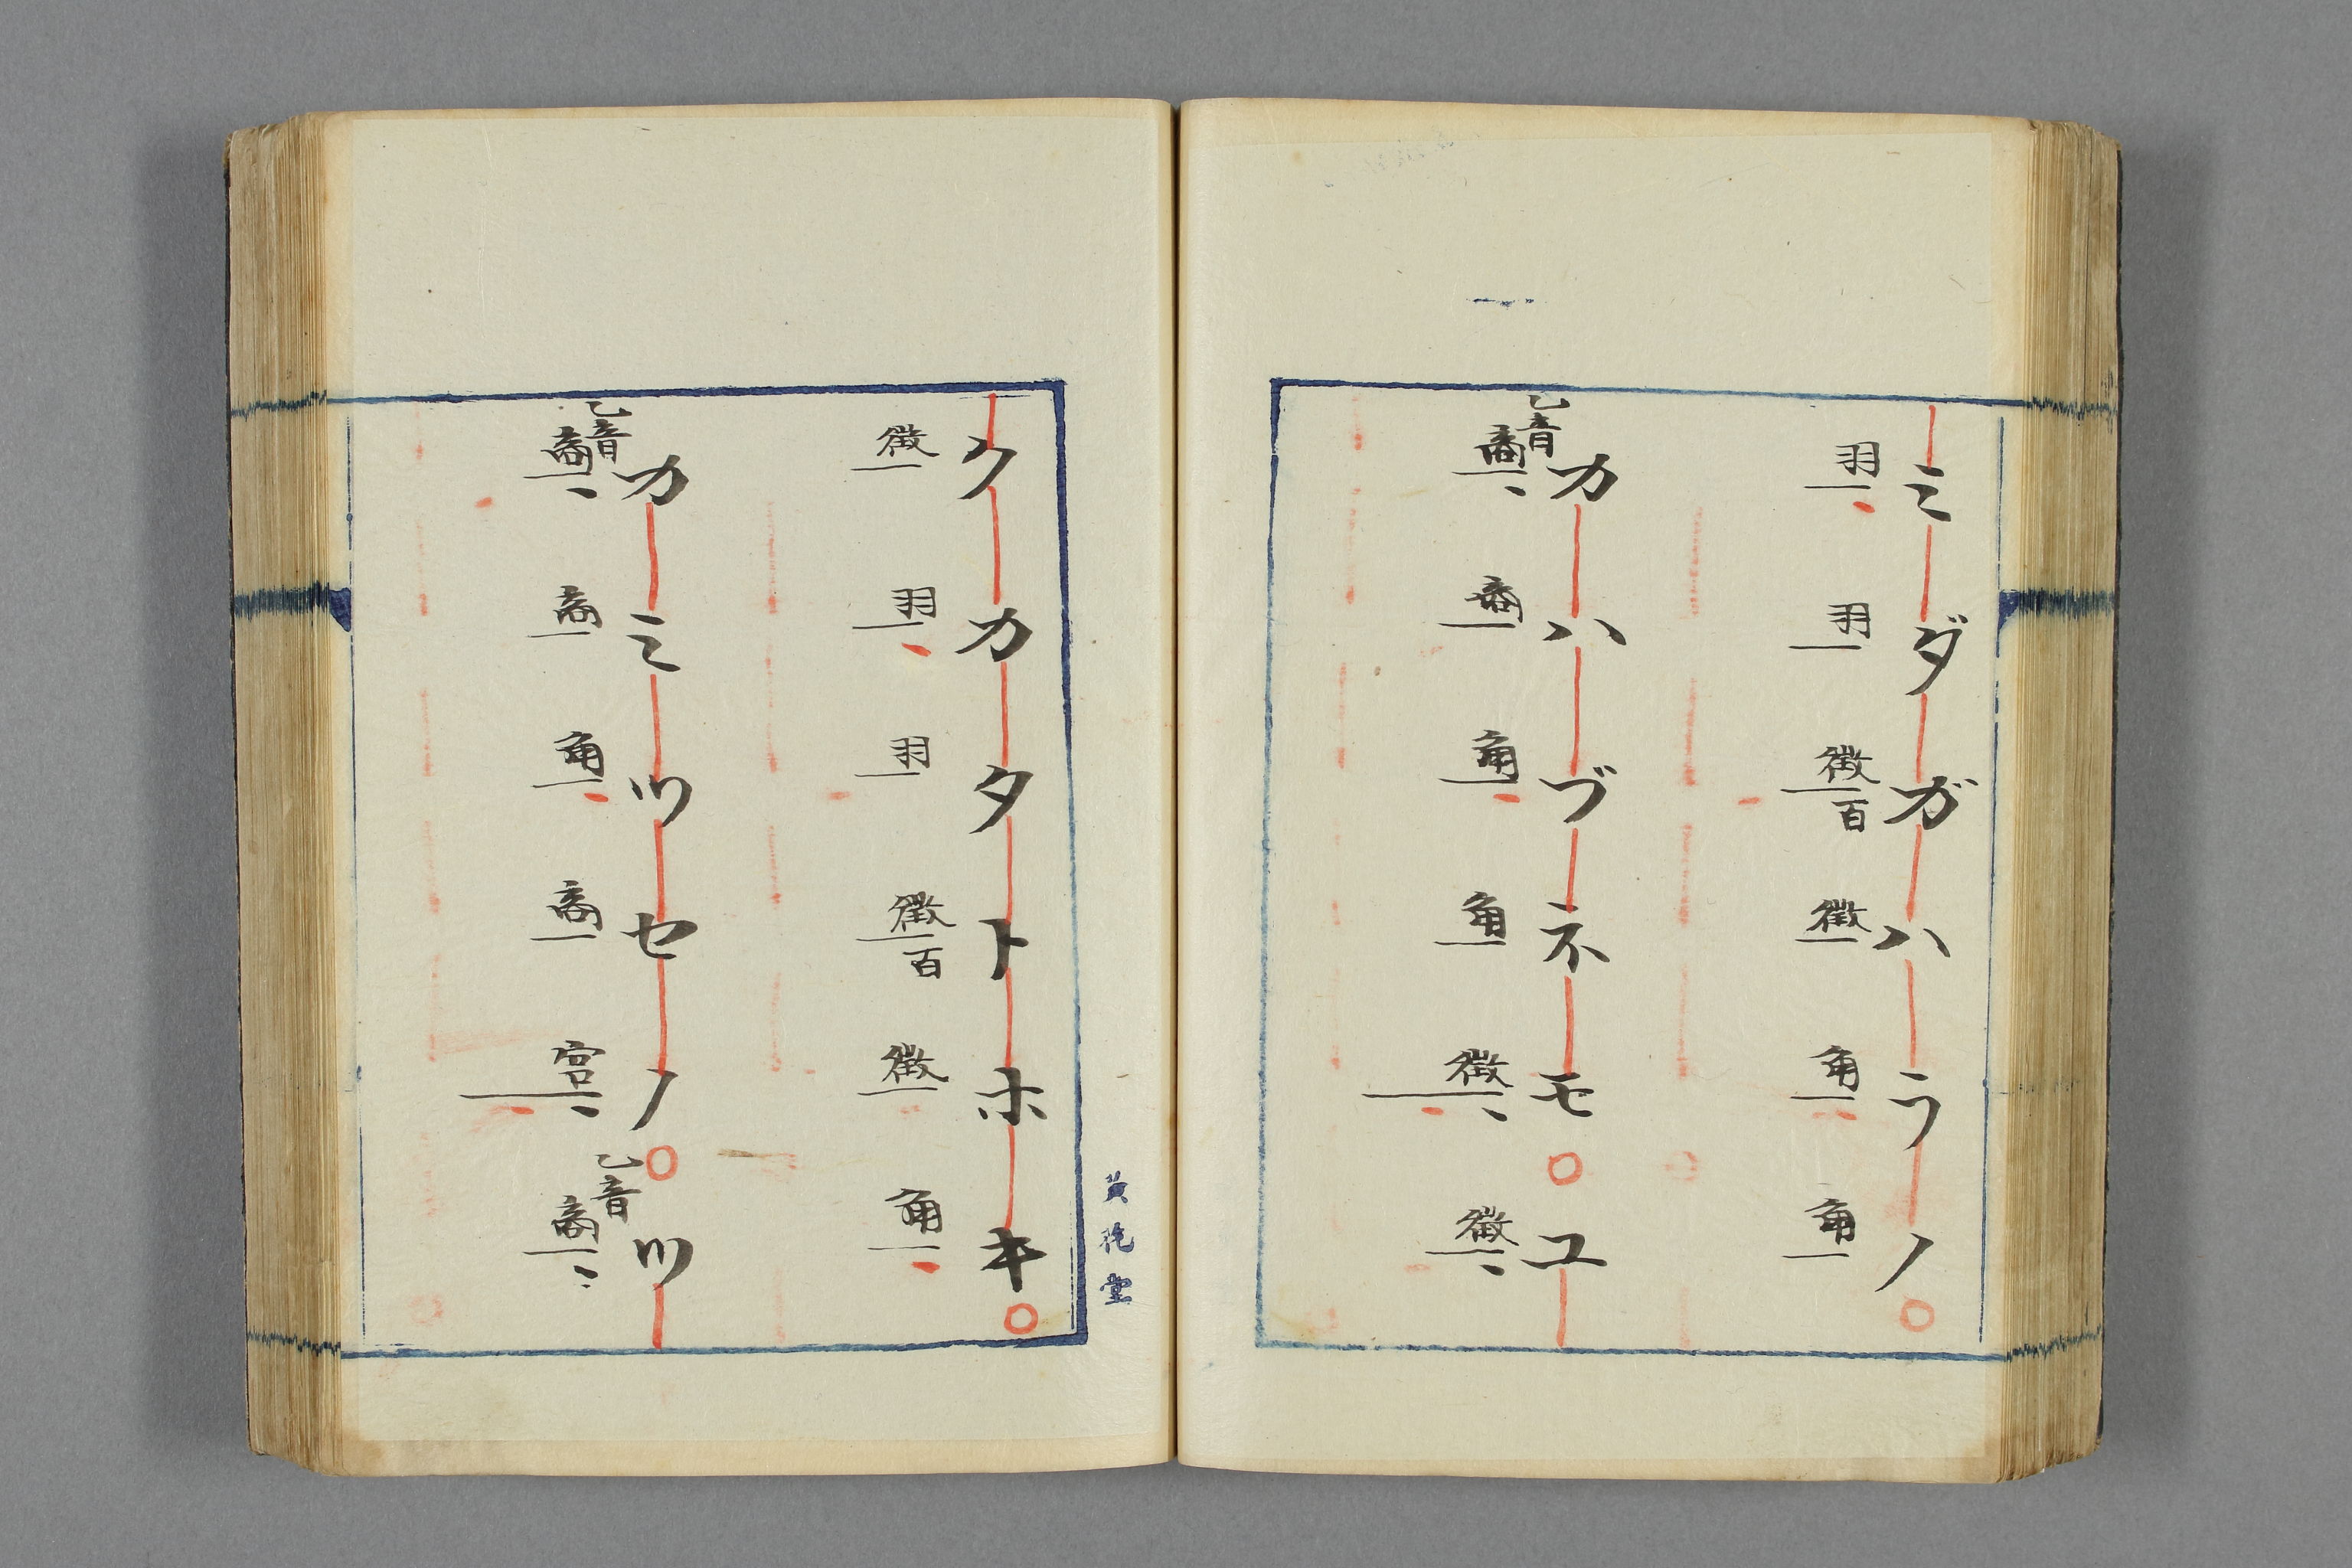 ミダガハラノ
羽羽徴百徴角角
カハヅネモ○ユ
乙音商商角角徴徴
クカタトホキ
徴羽羽徴百徴角
カミツセノ○ツ
乙音商商角商宮乙音商